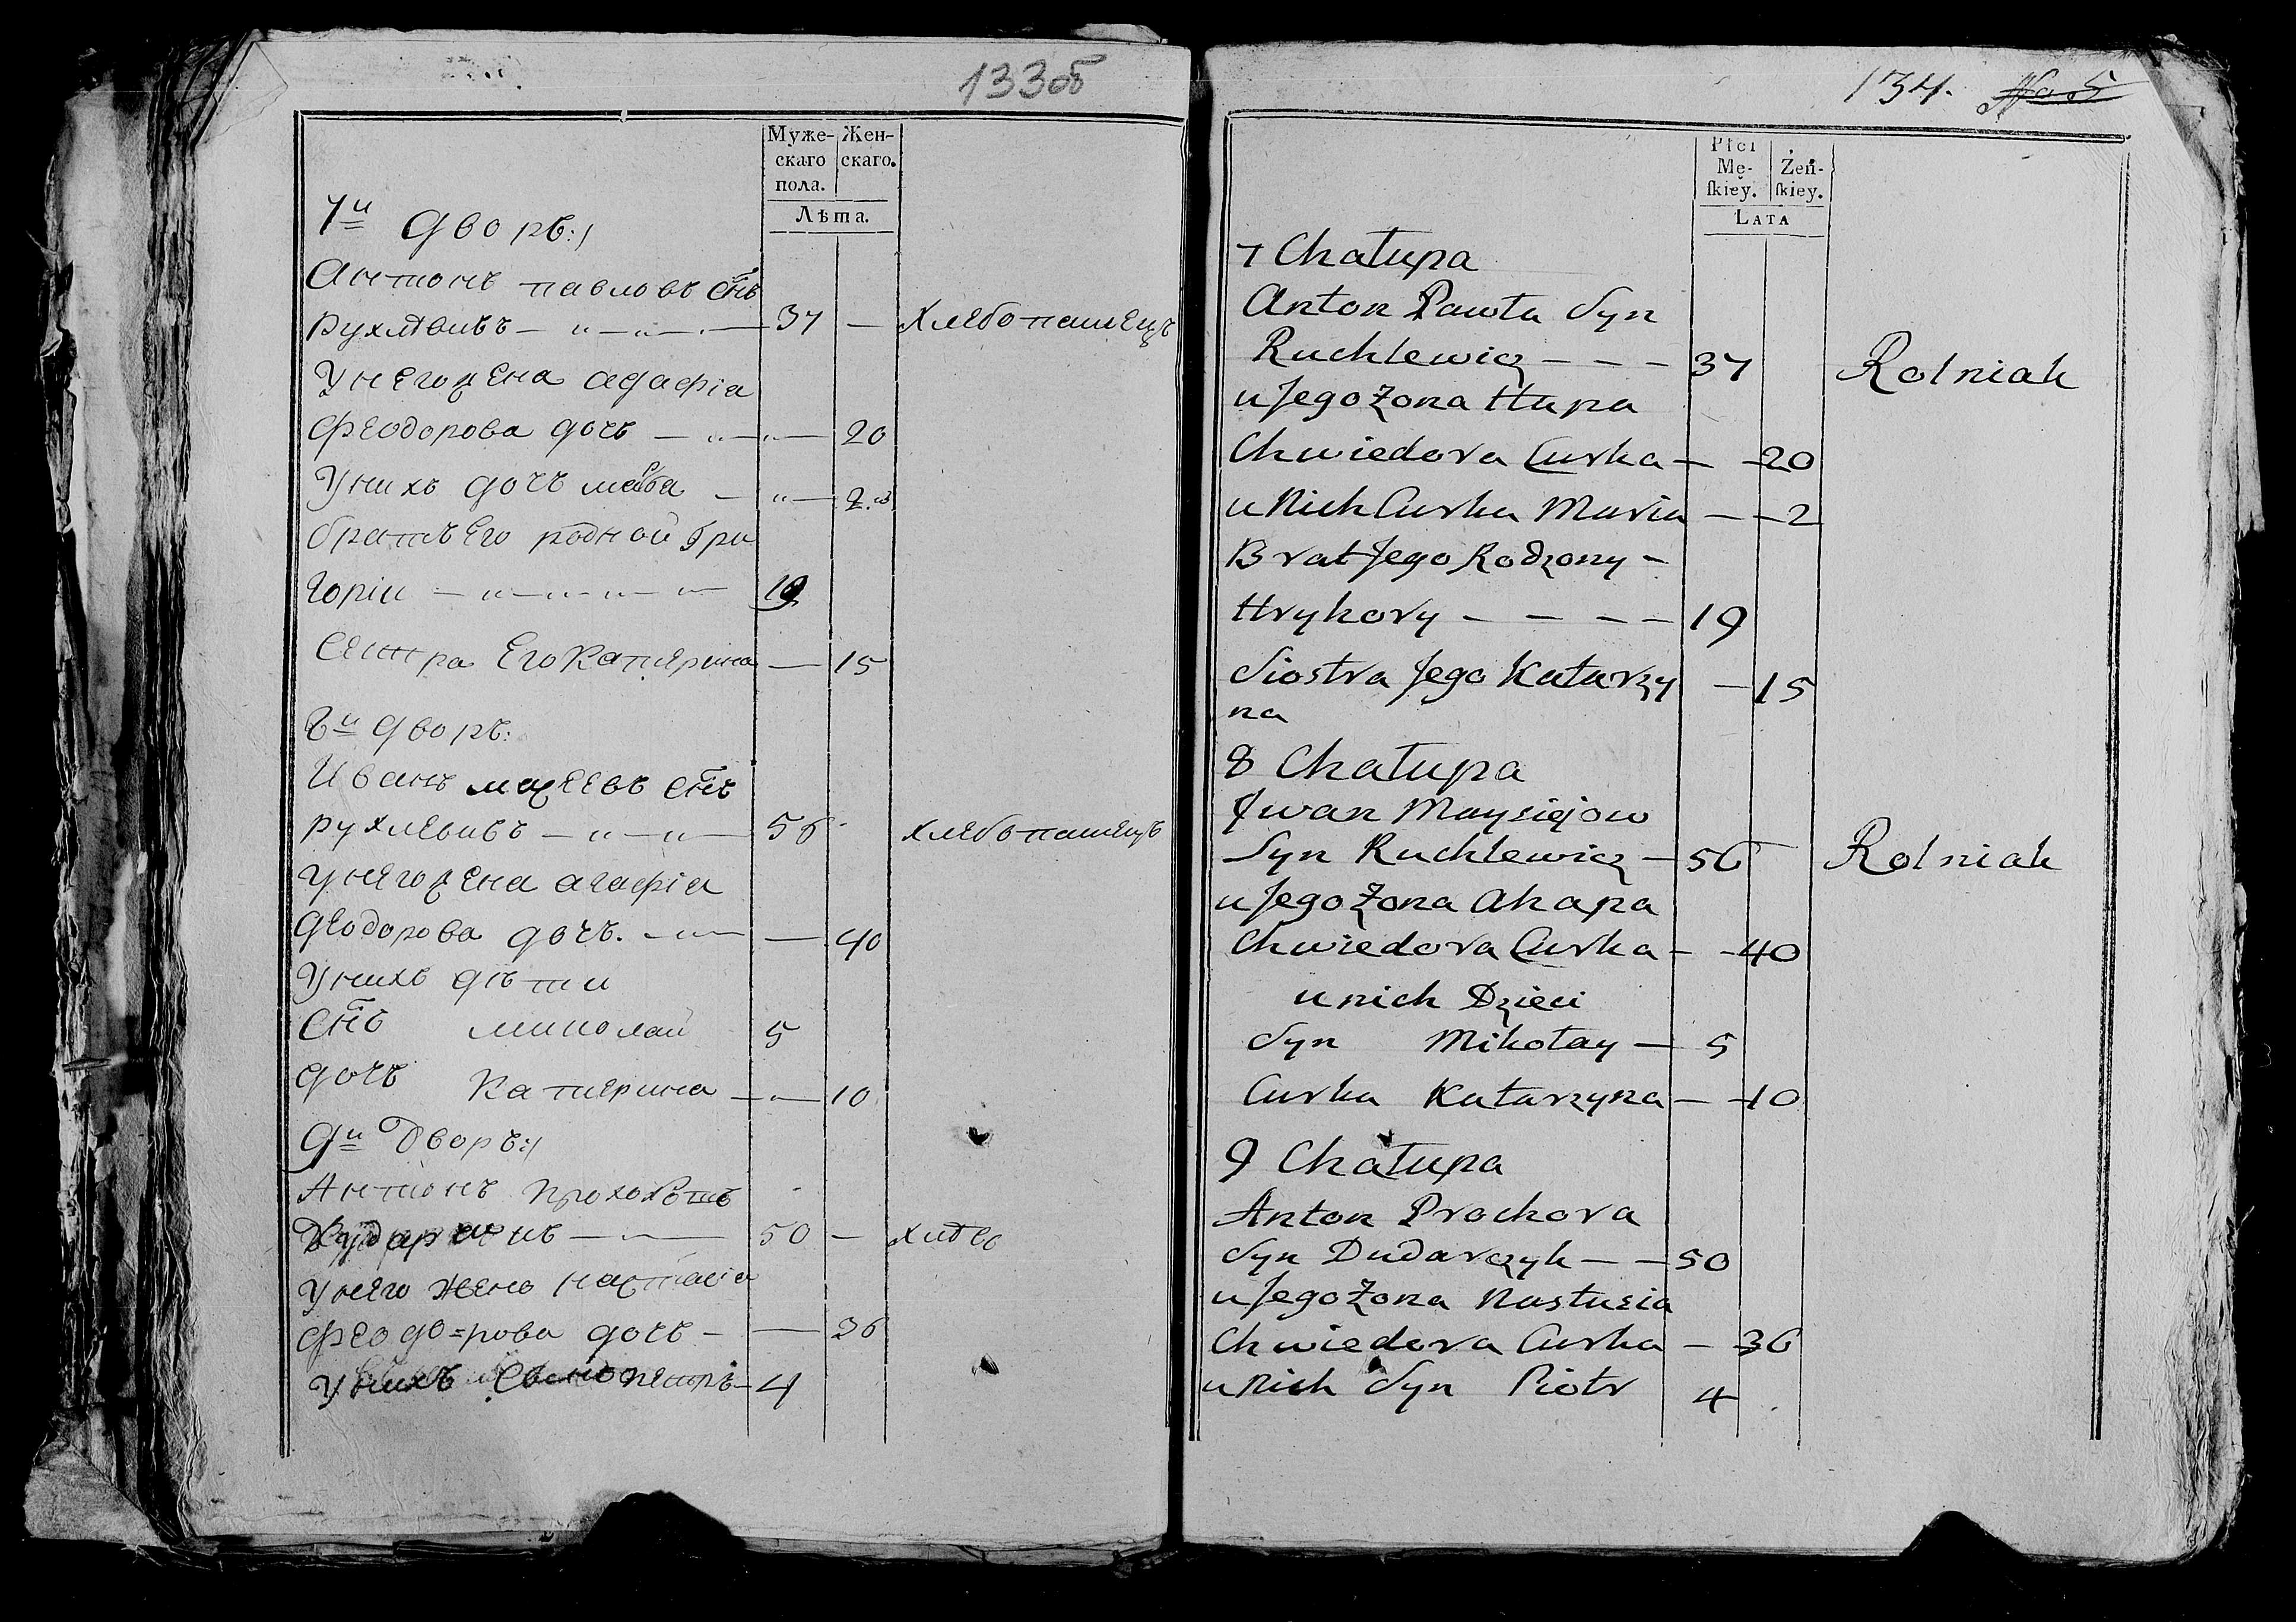 133об
Муже- Жен-
скаго скаго.
пола.
Лѣта.
7й дворъ:/
Антонъ павловъ снъ
рухлѣвичъ 37 — хлебопашецъ
У него жена агафія
Феодорова дочь — 20
У нихъ дочь — 2
братъ его родной Гри
горіи 19
Сестра его Катерина — 15
8й дворъ:
Иванъ снъ
рухлевичъ 56 хлебопашецъ
у него жена агафія
Феодорова дочь. — 40
У нихъ дѣти
Снъ миколай 5
дочь Катерина — 10
9й Дворъ:/
Антонъ
50 — хлѣб
У него жена настасіа
Феодо=рова дочь — 36
У нихъ Петръ — 4
134. No 5
Płci
Mę- Żeń-
skiey. skiey.
Lata
7 Chałupa
Anton Pawła Syn
Ruchlewicz - - - 37 Rolniak
u Jego Żona Hapa
Chwiedora Curka — 20
u Nich Curka Maria — 2
Brat Jego Rodzony -
Hryhory - - - - 19
Siostra Jego Katarzy — 15
na
8 Chałupa
Jwan Maysiejow
Syn Ruchlewicz — 56 Rolniak
u Jego Żona Ahapa
Chwiedora Curka — 40
u nich Dzieci
Syn Mikołay — 5
Curka Katarzyna — 10
9 Chałupa
Anton Prochora
Syn Dudarczyk — — 50
u Jego Żona Nastusia
Chwiedora Curka — 36
u Nich Syn Piotr 4